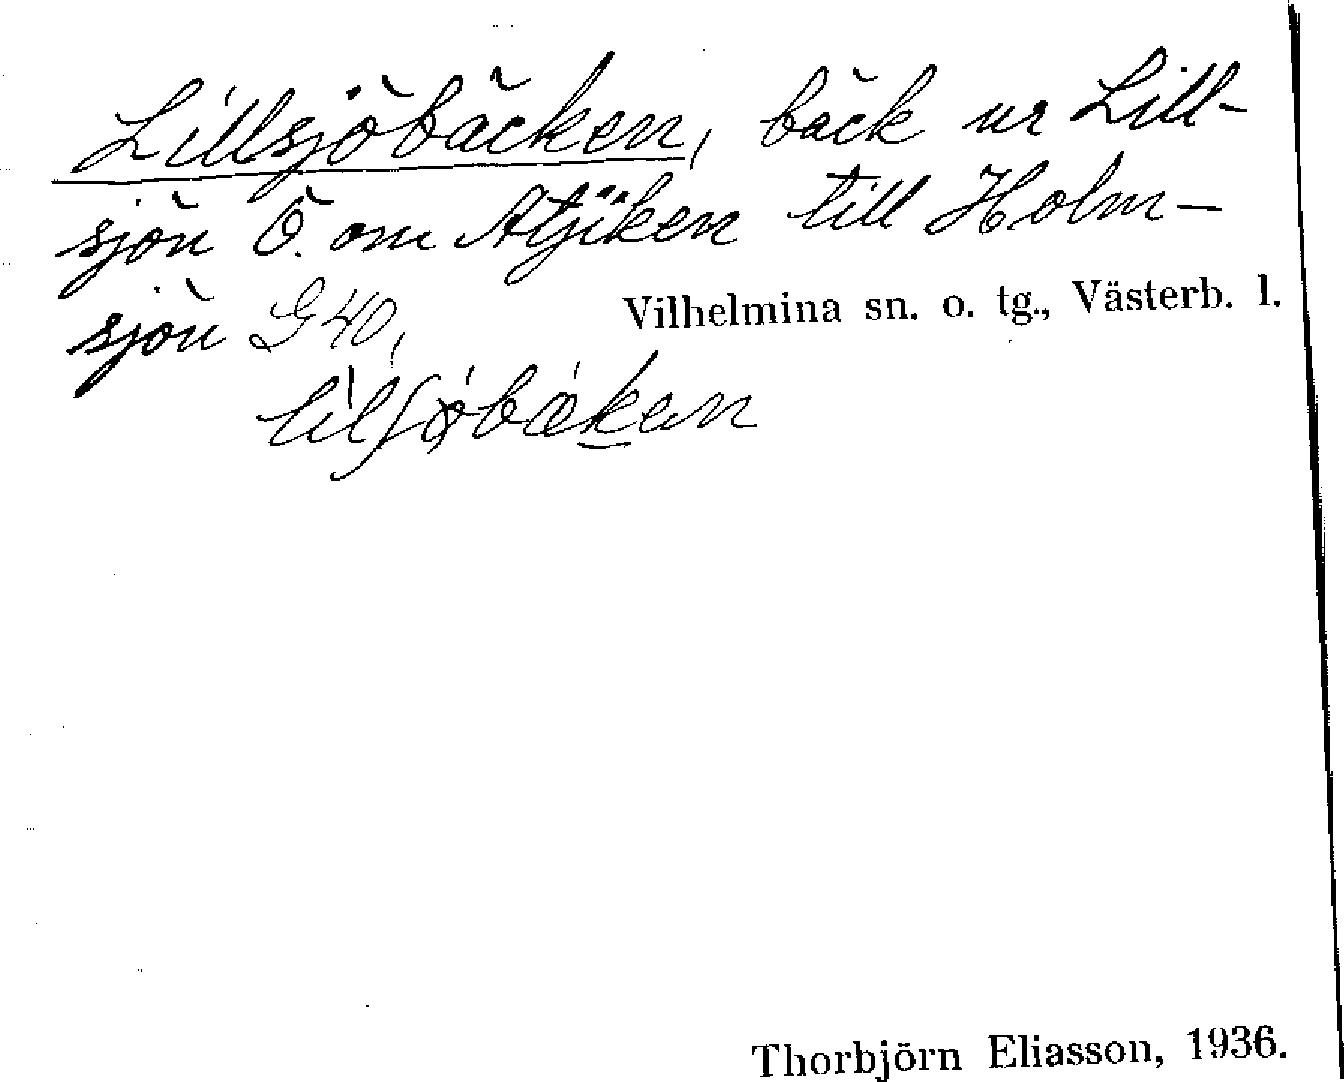 Lillsjöbäcken, bäck ur Lill-
sjön Ö. om Atjiken till Holm-
sjön G40,
Vilhelmina sn. o. tg., Västerb. l.
Thorbjörn Eliasson, 1936.